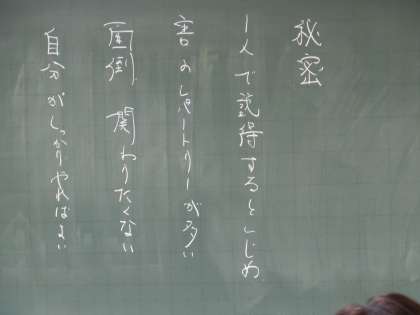 秘密
1人で説得するといじめ
害のレパートリーが多い
面倒 関わりたくない
自分がしっかりやればよい